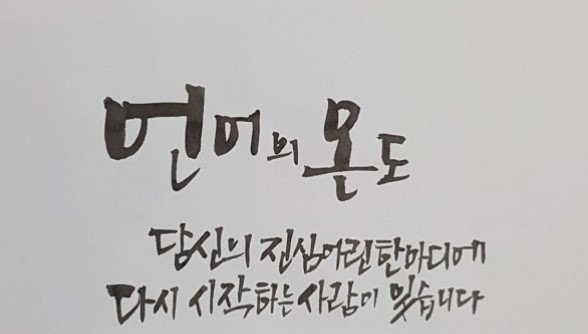 언어의 온도
당신의 진심어린 한마디에
다시 시작하는 사람이 있습니다